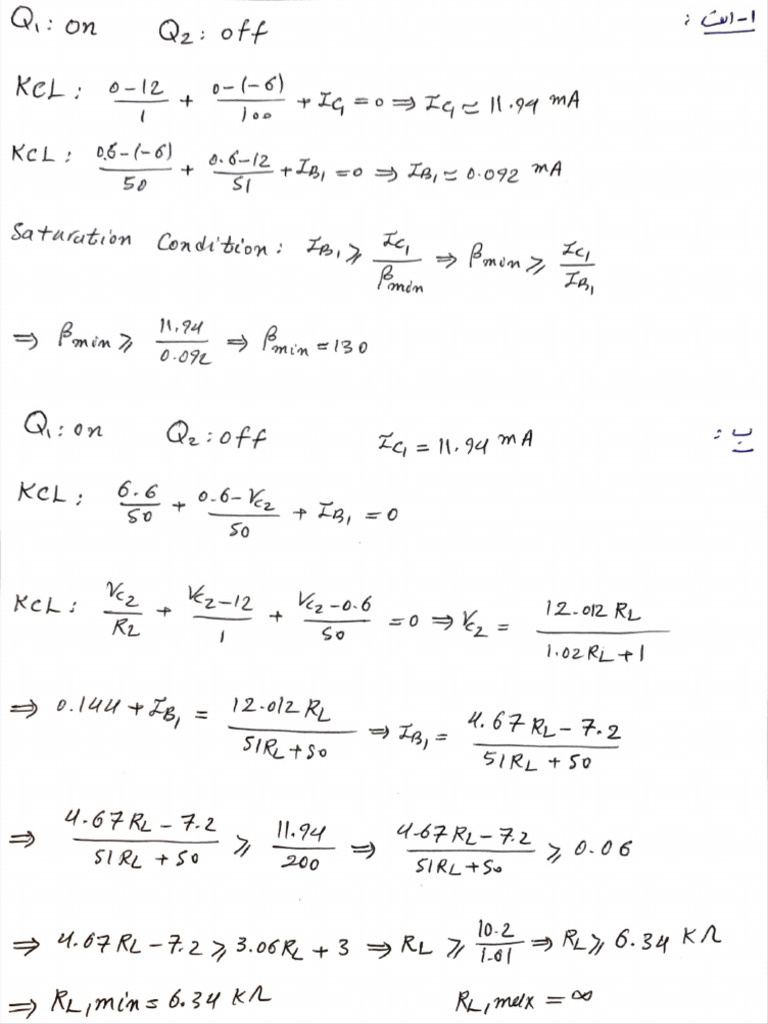 Q₁: on Q₂: off ۱-الف :
KCL: (0-12)/1 + (0-(-6))/100 + I_C₁ = 0 ⇒ I_C₁ ≃ 11.94 mA
KCL: (0.6-(-6))/50 + (0.6-12)/51 + I_B₁ = 0 ⇒ I_B₁ ≃ 0.092 mA
Saturation Condition: I_B₁ ⩾ I_C₁/β_min ⇒ β_min ⩾ I_C₁/I_B₁
⇒ β_min ⩾ 11.94/0.092 ⇒ β_min = 130
Q₁: on Q₂: off I_C₁ = 11.94 mA ب :
KCL: 6.6/50 + (0.6-V_C₂)/50 + I_B₁ = 0
KCL: V_C₂/R_L + (V_C₂-12)/1 + (V_C₂-0.6)/50 = 0 ⇒ V_C₂ = 12.012 R_L/(1.02 R_L + 1)
⇒ 0.144 + I_B₁ = 12.012 R_L/(51 R_L + 50) ⇒ I_B₁ = (4.67 R_L - 7.2)/(51 R_L + 50)
⇒ (4.67 R_L - 7.2)/(51 R_L + 50) ⩾ 11.94/200 ⇒ (4.67 R_L - 7.2)/(51 R_L + 50) ⩾ 0.06
⇒ 4.67 R_L - 7.2 ⩾ 3.06 R_L + 3 ⇒ R_L ⩾ 10.2/1.61 ⇒ R_L ⩾ 6.34 KΩ
⇒ R_L,min = 6.34 KΩ R_L,max = ∞